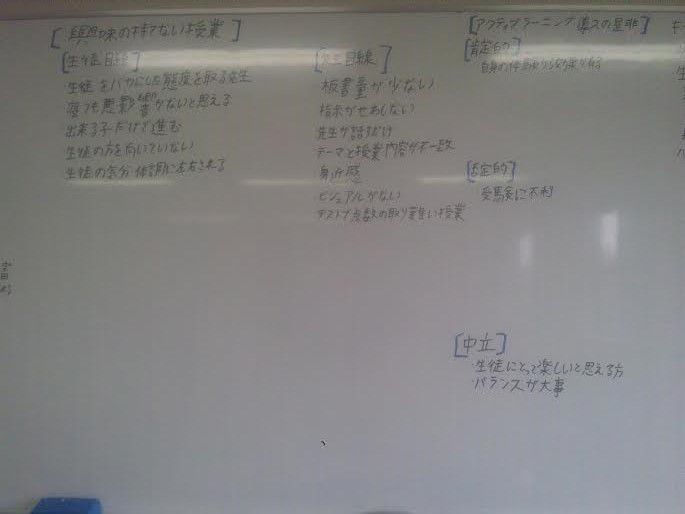 [興味の持てない授業]
[生徒目線]
生徒をバカにした態度を取る先生
落ても悪影響がないと思える
出来る子だけで進む
生徒の方を向いていない
生徒の気分 体調に左右される
目線]
板書量が少ない
指示がせわしない
先生が話すだけ
テーマと授業内容が不一致
身近感
ビジュアルがない
テストで点数の取り難い授業
[アクティブラーニング導入の是非]
[肯定的]
自身の体験より効果有る
[否定的]
受験に不利
[中立]
生徒にとって楽しいと思える方
バランスが大事